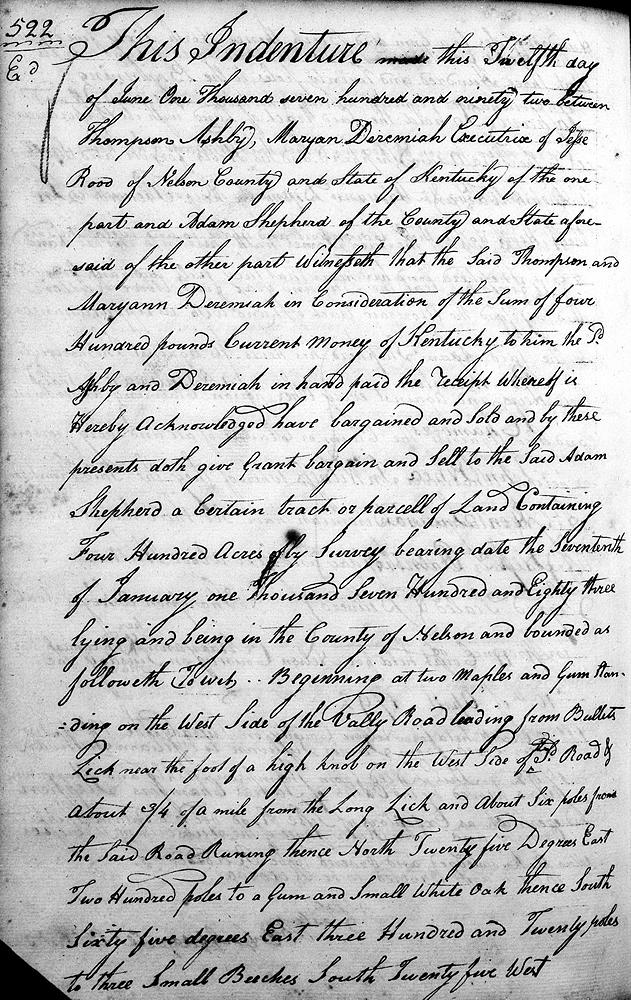 522
Exd
This Indenture made this Twelfth day
of June One Thousand seven hundred and ninety two between
Thompson Ashby, Maryan Deremiah Executrix of Jesse
Rood of Nelson County and State of Kentucky of the one
part and Adam Shepherd of the County and State afore-
said of the other part Witnesseth that the Said Thompson and
Maryann Deremiah in Consideration of the Sum of four
Hundred pounds Current Money of Kentucky to him the Sd
Ashby and Deremiah in hand paid the receipt Whereof is
Hereby Acknowledged have bargained and Sold and by these
presents doth give Grant bargain and Sell to the Said Adam
Shepherd a Certain tract or parcell of Land Containing
Four Hundred Acres of by Survey bearing date the Sevententh
of January one Thousand Seven Hundred and Eighty three
lying and being in the County of Nelson and bounded as
followeth To wit .. Beginning at two Maples and Gum Stan-
=ding on the West Side of the Vally Road leading from Bullits
Lick near the foot of a high knob on the West Side of Sd Road &
About 3/4 of a mile from the Long Lick and About Six poles from
the Said Road Runing thence North Twenty five Degrees East
Two Hundred poles to a Gum and Small White Oak thence South
Sixty five degrees East three Hundred and Twenty poles
to three Small Beeches South Twenty five West